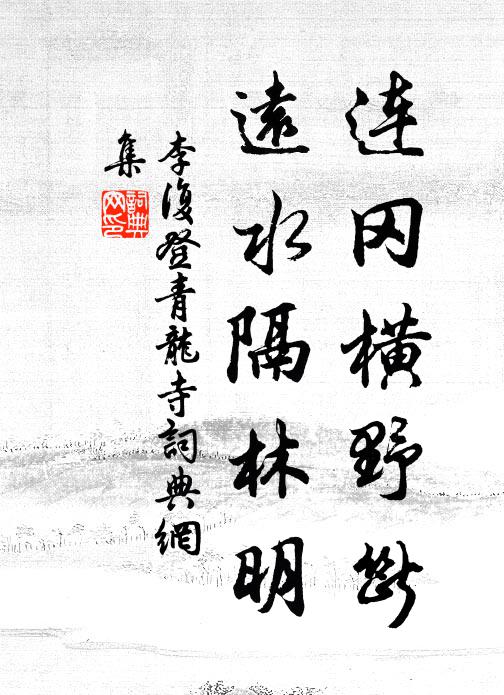 連冈橫野斷
遠水隔林明
李復登青龍寺詞典網
集
詞典
网印